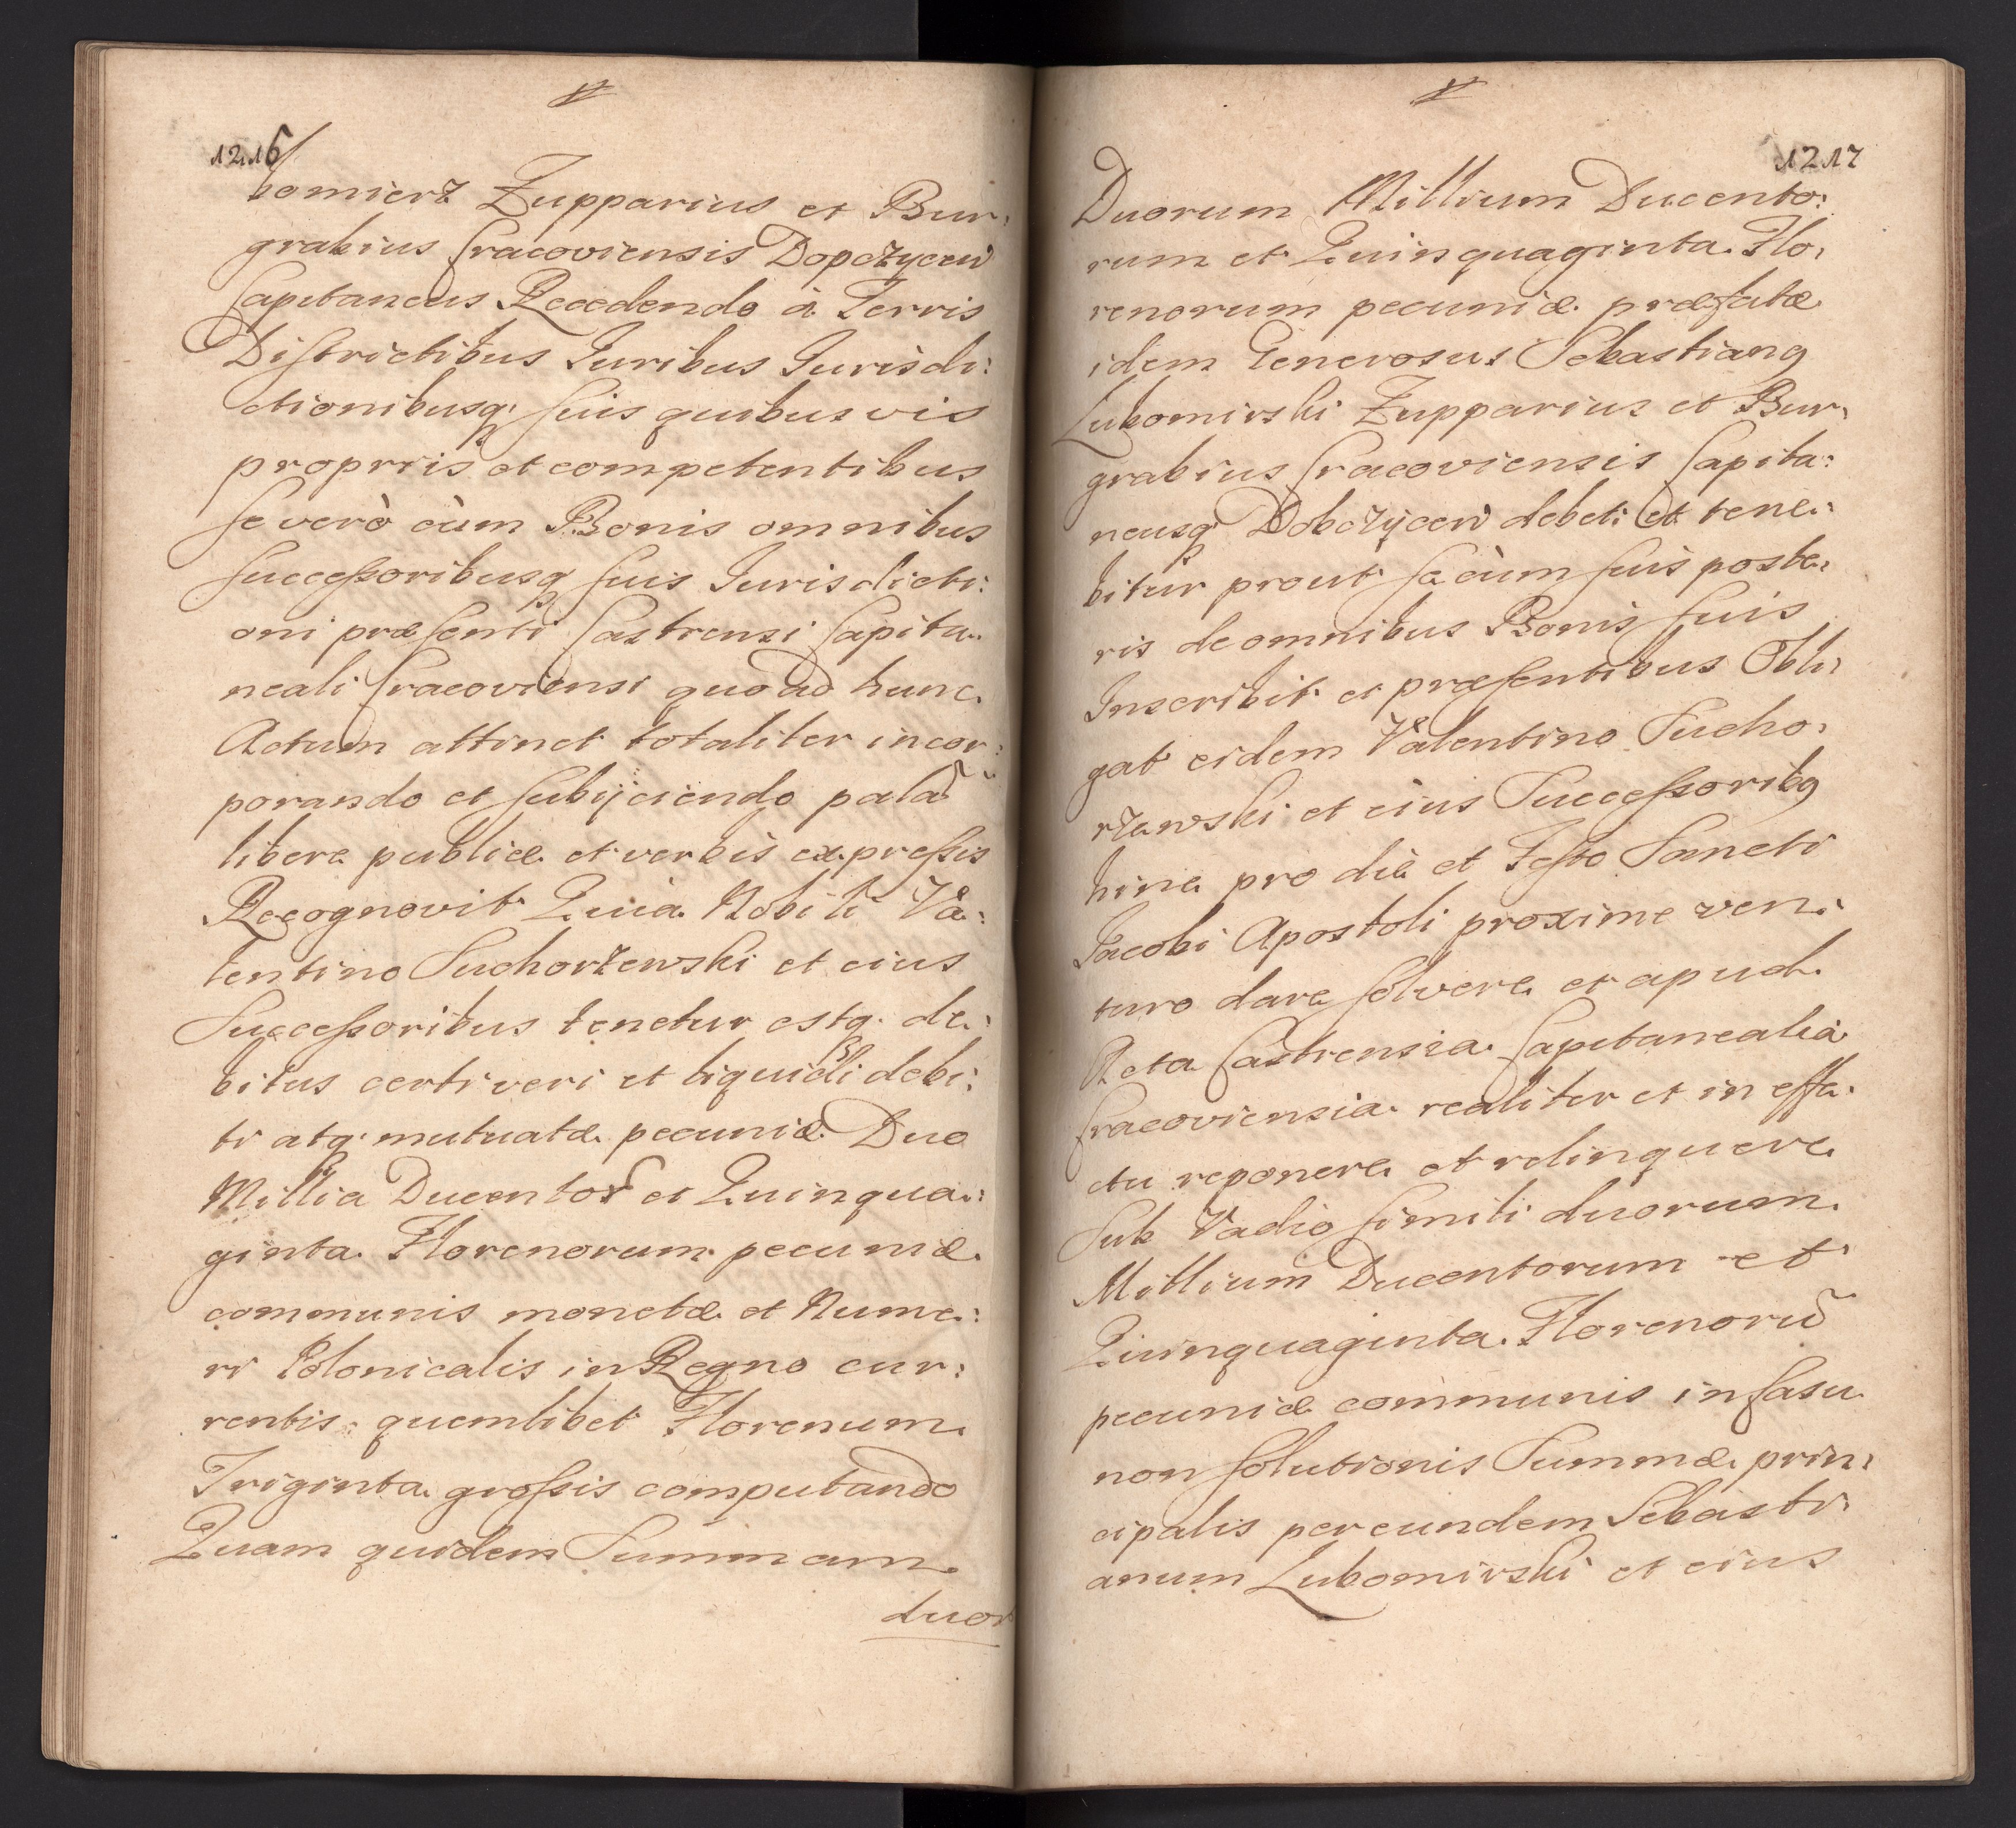 1216
bomierz Zupparius et Bur:
grabius Cracoviensis Dopczycen̄
Capitaneus Recedendo à Terris
Districtibus Iuribus Iurisdi:
ctionibusq̢ suis quibusvis
proprijs et competentibus
se verò cùm Bonis omnibus
Successoribusq̢ suis Iurisdicti:
oni præsenti Castrensi Capita:
neali Cracoviensi quoad hunc
Actum attinet totaliter incor:
porando et subijciendo palā
libere publicæ et verbis expressis
Recognovit Quia Nobili Va:
lentino Suchorzewski et eius
Successoribus tenetur estq̢ de:
bitus certi veri et liquidi debi:
ti atq̢ mutuatæ pecuniæ Duo
Millia Ducentor̃ et Quinqua:
ginta Florenorum pecuniæ
communis monetæ et Nume:
ri Polonicalis in Regno cur:
rentis quemlibet Florenum
Triginta grossis computando
Quam quidem Summam
duor
1217
Duorum Millium Ducento:
rum et Quinquaginta Flo:
renorum pecuniæ præfatæ
idem Generosus Sebastiang
Lubomirski Zupparius et Bur:
grabius Cracoviensis Capita:
neusq̢ Dobczÿcen̄ debet et tene:
bitur prout se cùm suis poste:
ris de omnibus Bonis suis
Inscribit et præsentibus Obli:
gat eidem Valentino Sucho:
rzewski et eius Successoribg
hinc pro die et Festo Sancti
Jacobi Apostoli proxime ven:
turo dare solvere et apud
Acta Castrensia Capitanealia
Cracoviensia realiter et in effe:
ctu reponere et relinquere
Sub Vadio simili duorum
Millium Ducentorum et
Quinquaginta Florenorū
pecuniæ communis in Casu
non solutionis Summæ prin:
cipalis per eundem Sebasti:
anum Lubomirski et eius